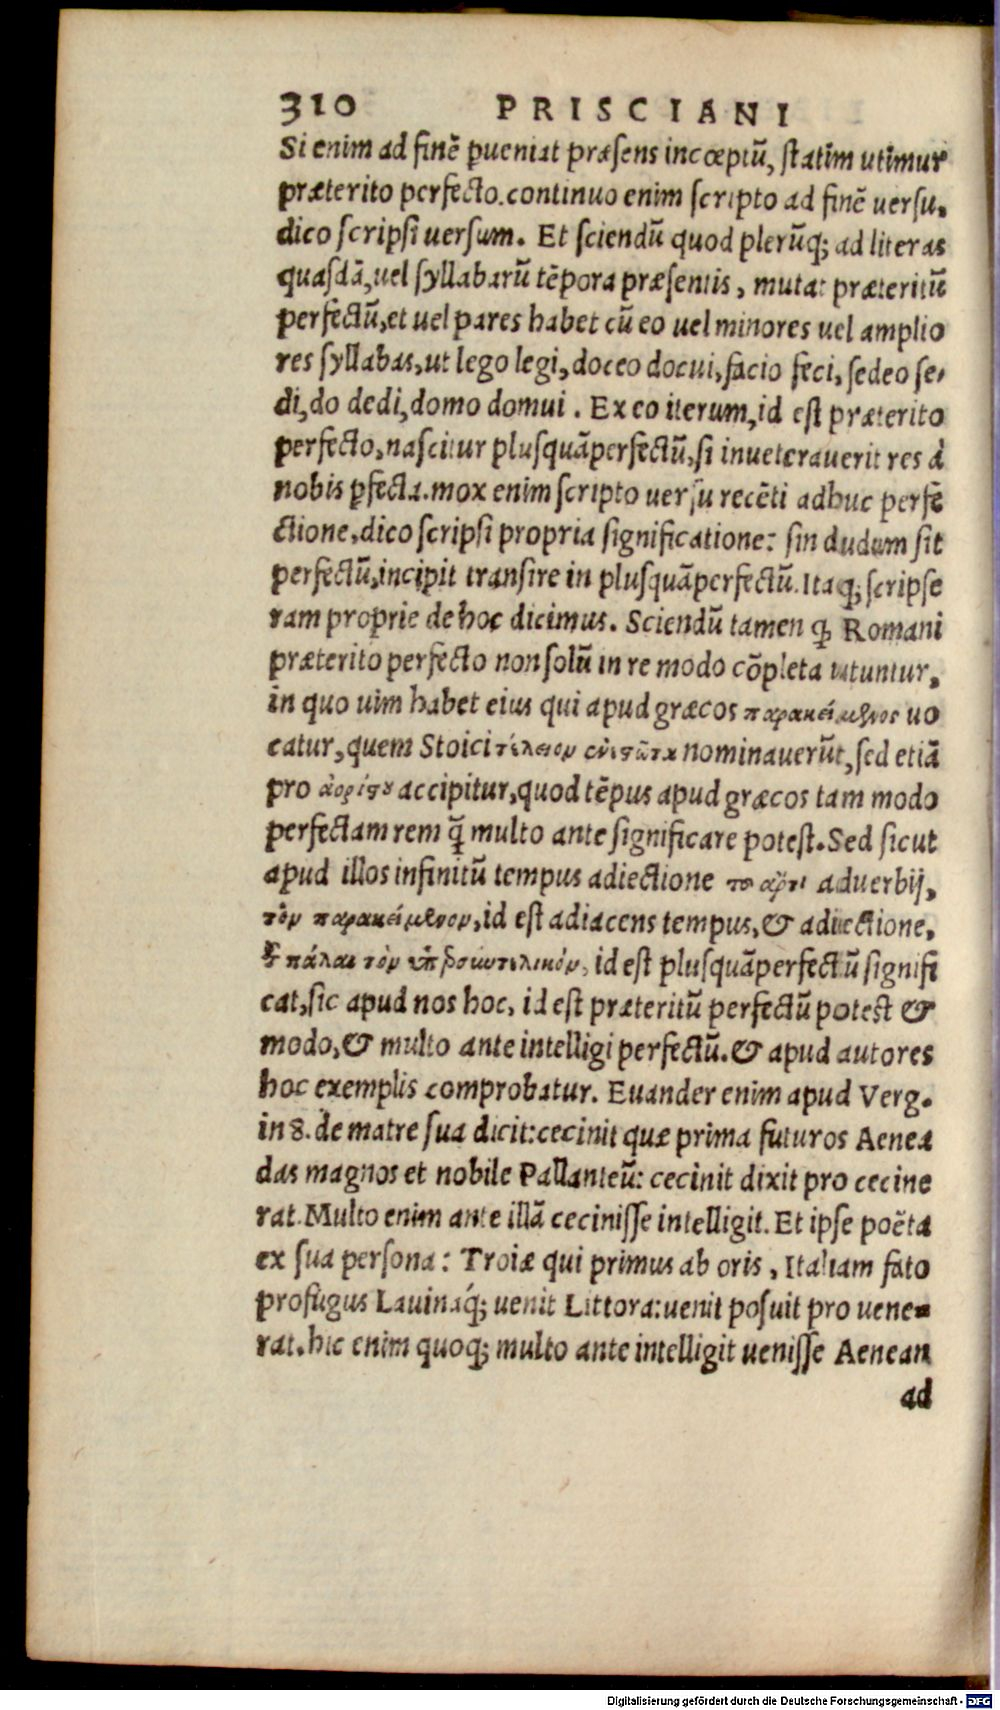 310 PRISCIANI
Si enim ad finē ꝑueniat præsens incœptū, statim utimur
præterito perfecto. continuo enim scripto ad finē uersu,
dico scripsi uersum. Et sciendū quod plerūq; ad literas
quasdā, uel syllabarū tēpora præsentis, mutat præteritū
perfectū, et uel pares habet cū eo uel minores uel amplio
res syllabas, ut lego legi, doceo docui, facio feci, sedeo se,
di, do dedi, domo domui. Ex eo iterum, id est præterito
perfecto, nascitur plusquāperfectū, si inueterauerit res à
nobis ꝑfecta. mox enim scripto uersu recēti adhuc perfe
ctione, dico scripsi propria significatione: sin dudum sit
perfectū, incipit transire in plusquāperfectū. Itaq; scripse
ram proprie de hoc dicimus. Sciendū tamen ꝙ Romani
præterito perfecto non solū in re modo cōpleta utuntur,
in quo uim habet eius qui apud græcos παρακείμενος uo
catur, quem Stoici τέλειον ἐνεστῶτα nominauerūt, sed etiā
pro ἀορίστου accipitur, quod tēpus apud græcos tam modo
perfectam rem ꝗ̄ multo ante significare potest. Sed sicut
apud illos infinitū tempus adiectione τοῦ ἄρτι aduerbij,
τὸν παρακείμενον, id est adiacens tempus, & adiectione,
τοῦ πάλαι τὸν ὑπερσυντελικόν, id est plusquāperfectū signifi
cat, sic apud nos hoc, id est præteritū perfectū potest &
modo, & multo ante intelligi perfectū. & apud autores
hoc exemplis comprobatur. Euander enim apud Verg.
in 8. de matre sua dicit: cecinit quæ prima futuros Aenea
das magnos et nobile Pallanteū: cecinit dixit pro cecine
rat. Multo enim ante illā cecinisse intelligit. Et ipse poëta
ex sua persona: Troiæ qui primus ab oris, Italiam fato
profugus Lauinaq́; uenit Littora: uenit posuit pro uene-
rat. hic enim quoq; multo ante intelligit uenisse Aenean
ad
Digitalisierung gefördert durch die Deutsche Forschungsgemeinschaft - DFG